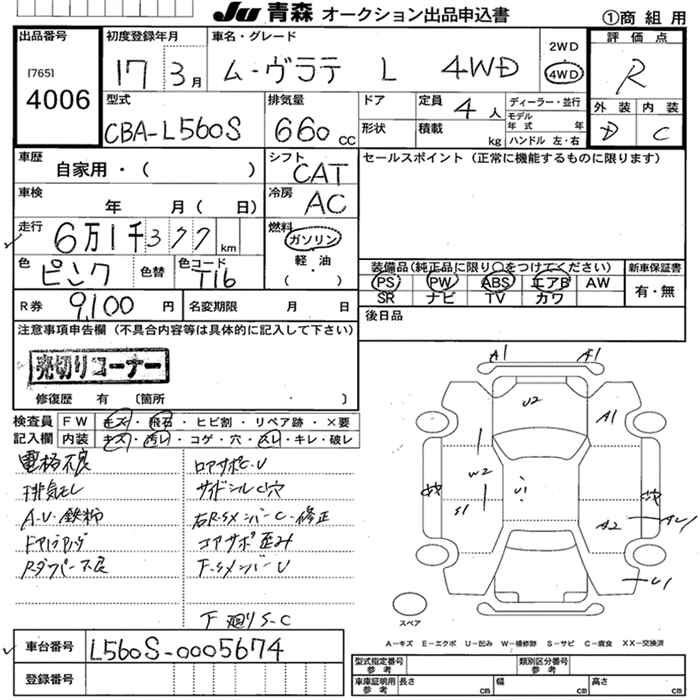 JU 青森 オークション出品申込書
①商 組 用
出品番号
[765]
4006
初度登録年月
17 3月
車名・グレード
ム-ヴラテ L 4WD
2WD
4WD
評価点
R
外装 内装
D C
型式
CBA-L560S
排気量
660 cc
ドア
形状
定員 4人
積載 kg
ディーラー・並行
モデル年式 年
ハンドル 左・右
車歴
自家用・( )
シフト
CAT
セールスポイント (正常に機能するものに限ります)
車検
年 月( 日)
冷房
AC
走行
6万1千377 km
燃料
ガソリン
軽油
( ・ )
色
ピンク
色替
色コード
T16
装備品(純正品に限り○をつけてください)
PS PW ABS エアB AW
SR ナビ TV カワ
新車保証書
有・無
R券 9,100 円
名変期限 月 日
後日品
注意事項申告欄 (不具合内容等は具体的に記入して下さい)
売切りコーナー
修復歴 有 〔箇所 〕
検査員記入欄
FW キズ・飛石・ヒビ割・リペア跡・×要
内装 キズ・汚レ・コゲ・穴・スレ・キレ・破レ
電格不良
排気モレ
A・U・鉄粉
Rダンパー不良
ロアサポC・U
サイドシルC穴
右R-SメンバーC・修正
コアサポ歪み
F-SメンバーU
下廻りS-C
A1 A1
U2
A1
W2
U1
S1
A2
スペア
A-キズ E-エクボ U-凹み W-補修跡 S-サビ C-腐食 XX-交換済
車台番号 L560S-0005674
登録番号
型式指定番号 参考
類別区分番号 参考
車庫証明用 参考
長さ cm 幅 cm 高さ cm